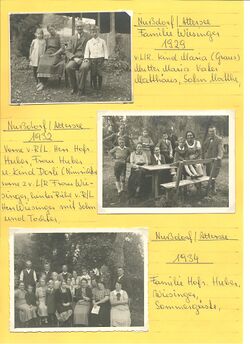 Nußdorf/Attersee
Familie Wiesinger
1929
v.L/R. Kind Maria (Graus)
Mutter Maria Vater
Matthäus, Sohn Matth.
Nußdorf/Attersee
1932
Vorne v.R/L Herr Hofr.
Huber, Frau Huber
u. Kind Dorli
vorne 2 v L/R Frau Wie-
singer, hintere Reihe v R/L
Herr Wiesinger mit Sohn
und Tochter
Nußdorf/Attersee
1934
Familie Hofr. Huber,
Wiesinger,
Sommergäste,